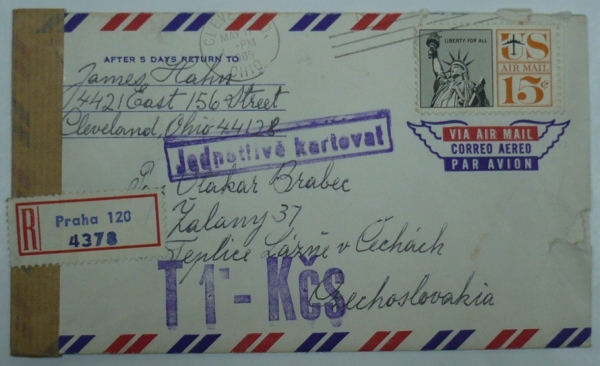 CLEVE
MAY
PM
1965
OHIO
LIBERTY FOR ALL
US
AIR MAIL
15¢
AFTER 5 DAYS RETURN TO
James Hahn
14421 East 156 Street
Cleveland, Ohio 44128
VIA AIR MAIL
CORREO AEREO
PAR AVION
Jednotlivě kartovat
Pan Otakar Brabec
Žalany 37
Teplice Lázně v Čechách
Czechoslovakia
R
Praha 120
4378
T 1'- Kčs